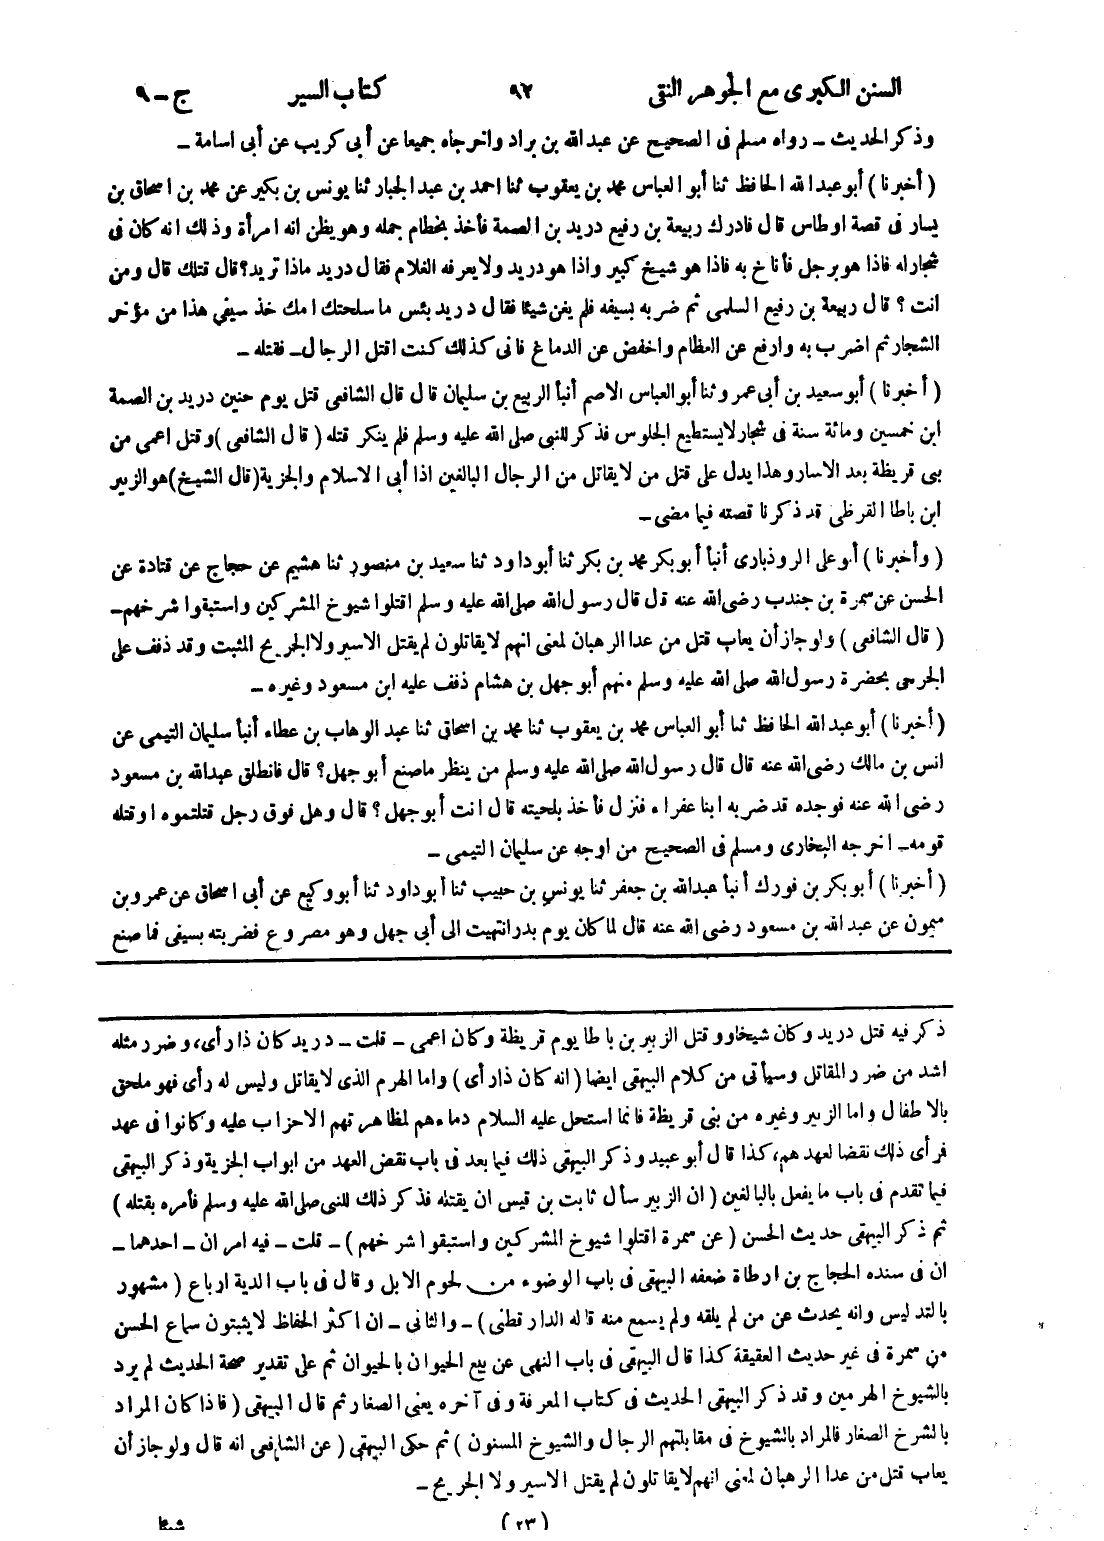 السنن الكبرى مع الجوهر النقى ٩٢ كتاب السير ج - ٩
وذكر الحديث - رواه مسلم فى الصحيح عن عبد الله بن براد واخرجاه جميعا عن أبى كريب عن أبى اسامة -
( أخبرنا ) أبو عبد الله الحافظ ثنا أبو العباس محمد بن يعقوب ثنا احمد بن عبد الجبار ثنا يونس بن بكير عن محمد بن اسحاق بن
يسار فى قصة اوطاس قال فادرك ربيعة بن رفيع دريد بن الصمة فأخذ بخطام جمله وهو يظن انه امرأة وذلك انه كان فى
شجار له فاذا هو برجل فأناخ به فاذا هو شيخ كبير واذا هو دريد ولا يعرفه الغلام فقال دريد ماذا تريد؟ قال قتلك قال ومن
انت ؟ قال ربيعة بن رفيع السلمى ثم ضربه بسيفه فلم يغن شيئا فقال دريد بئس ما سلحتك امك خذ سيفى هذا من مؤخر
الشجار ثم اضرب به وارفع عن العظام واخفض عن الدماغ فانى كذلك كنت اقتل الرجال - فقتله -
( أخبرنا ) أبو سعيد بن أبى عمرو ثنا أبو العباس الاصم أنبأ الربيع بن سليمان قال قال الشافعى قتل يوم حنين دريد بن الصمة
ابن خمسين ومائة سنة فى شجار لا يستطيع الجلوس فذكر للنبى صلى الله عليه وسلم فلم ينكر قتله ( قال الشافعى ) وقتل اعمى من
بنى قريظة بعد الاسار وهذا يدل على قتل من لا يقاتل من الرجال البالغين اذا أبى الاسلام والجزية (قال الشيخ) هو الزبير
ابن باطا القرظى قد ذكرنا قصته فيما مضى -
( وأخبرنا ) أبو على الروذبارى أنبأ أبو بكر محمد بن بكر ثنا أبو داود ثنا سعيد بن منصور ثنا هشيم عن حجاج عن قتادة عن
الحسن عن سمرة بن جندب رضى الله عنه قال قال رسول الله صلى الله عليه وسلم اقتلوا شيوخ المشركين واستبقوا شرخهم -
( قال الشافعى ) ولو جاز أن يعاب قتل من عدا الرهبان لمعنى انهم لا يقاتلون لم يقتل الاسير ولا الجريح المثبت وقد ذفف على
الجرحى بحضرة رسول الله صلى الله عليه وسلم منهم أبو جهل بن هشام ذفف عليه ابن مسعود وغيره -
( أخبرنا ) أبو عبد الله الحافظ ثنا أبو العباس محمد بن يعقوب ثنا محمد بن اسحاق ثنا عبد الوهاب بن عطاء أنبأ سليمان التيمى عن
انس بن مالك رضى الله عنه قال قال رسول الله صلى الله عليه وسلم من ينظر ماصنع أبو جهل؟ قال فانطلق عبد الله بن مسعود
رضى الله عنه فوجده قد ضربه ابنا عفراء فنزل فأخذ بلحيته قال انت أبو جهل ؟ قال وهل فوق رجل قتلتموه او قتله
قومه - اخرجه البخارى ومسلم فى الصحيح من اوجه عن سليمان التيمى -
( أخبرنا ) أبو بكر بن فورك أنبأ عبد الله بن جعفر ثنا يونس بن حبيب ثنا أبو داود ثنا أبو وكيع عن أبى اسحاق عن عمرو بن
ميمون عن عبد الله بن مسعود رضى الله عنه قال لما كان يوم بدر انتهيت الى أبى جهل وهو مصروع فضربته بسيفى فما صنع
ذكر فيه قتل دريد وكان شيخا وقتل الزبير بن باطا يوم قريظة وكان اعمى - قلت - دريد كان ذا رأى، وضرر مثله
اشد من ضرر المقاتل وسيأتى من كلام البيهقى ايضا ( انه كان ذا رأى ) واما الهرم الذى لا يقاتل وليس له رأى فهو ملحق
بالاطفال واما الزبير وغيره من بنى قريظة فانما استحل عليه السلام دماءهم لمظاهرتهم الاحزاب عليه وكانوا فى عهد
فرأى ذلك نقضا لعهدهم، كذا قال أبو عبيد وذكر البيهقى ذلك فيما بعد فى باب نقض العهد من ابواب الجزية وذكر البيهقى
فيما تقدم فى باب ما يفعل بالبالغين ( ان الزبير سأل ثابت بن قيس ان يقتله فذكر ذلك للنبى صلى الله عليه وسلم فأمره بقتله )
ثم ذكر البيهقى حديث الحسن ( عن سمرة اقتلوا شيوخ المشركين واستبقوا شرخهم ) - قلت - فيه امران - احدهما -
ان فى سنده الحجاج بن ارطاة ضعفه البيهقى فى باب الوضوء من لحوم الابل وقال فى باب الدية ارباع ( مشهور
بالتدليس وانه يحدث عن من لم يلقه ولم يسمع منه قاله الدارقطنى ) - والثانى - ان اكثر الحفاظ لا يثبتون سماع الحسن
من سمرة فى غير حديث العقيقة كذا قال البيهقى فى باب النهى عن بيع الحيوان بالحيوان ثم على تقدير صحة الحديث لم يرد
بالشيوخ الهرمين وقد ذكر البيهقى الحديث فى كتاب المعرفة وفى آخره يعنى الصغار ثم قال البيهقى ( فاذا كان المراد
بالشرخ الصغار فالمراد بالشيوخ فى مقابلتهم الرجال والشيوخ المسنون ) ثم حكى البيهقى ( عن الشافعى انه قال ولو جاز أن
يعاب قتل من عدا الرهبان لمعنى انهم لا يقاتلون لم يقتل الاسير ولا الجريح -
(٢٣) شيئا